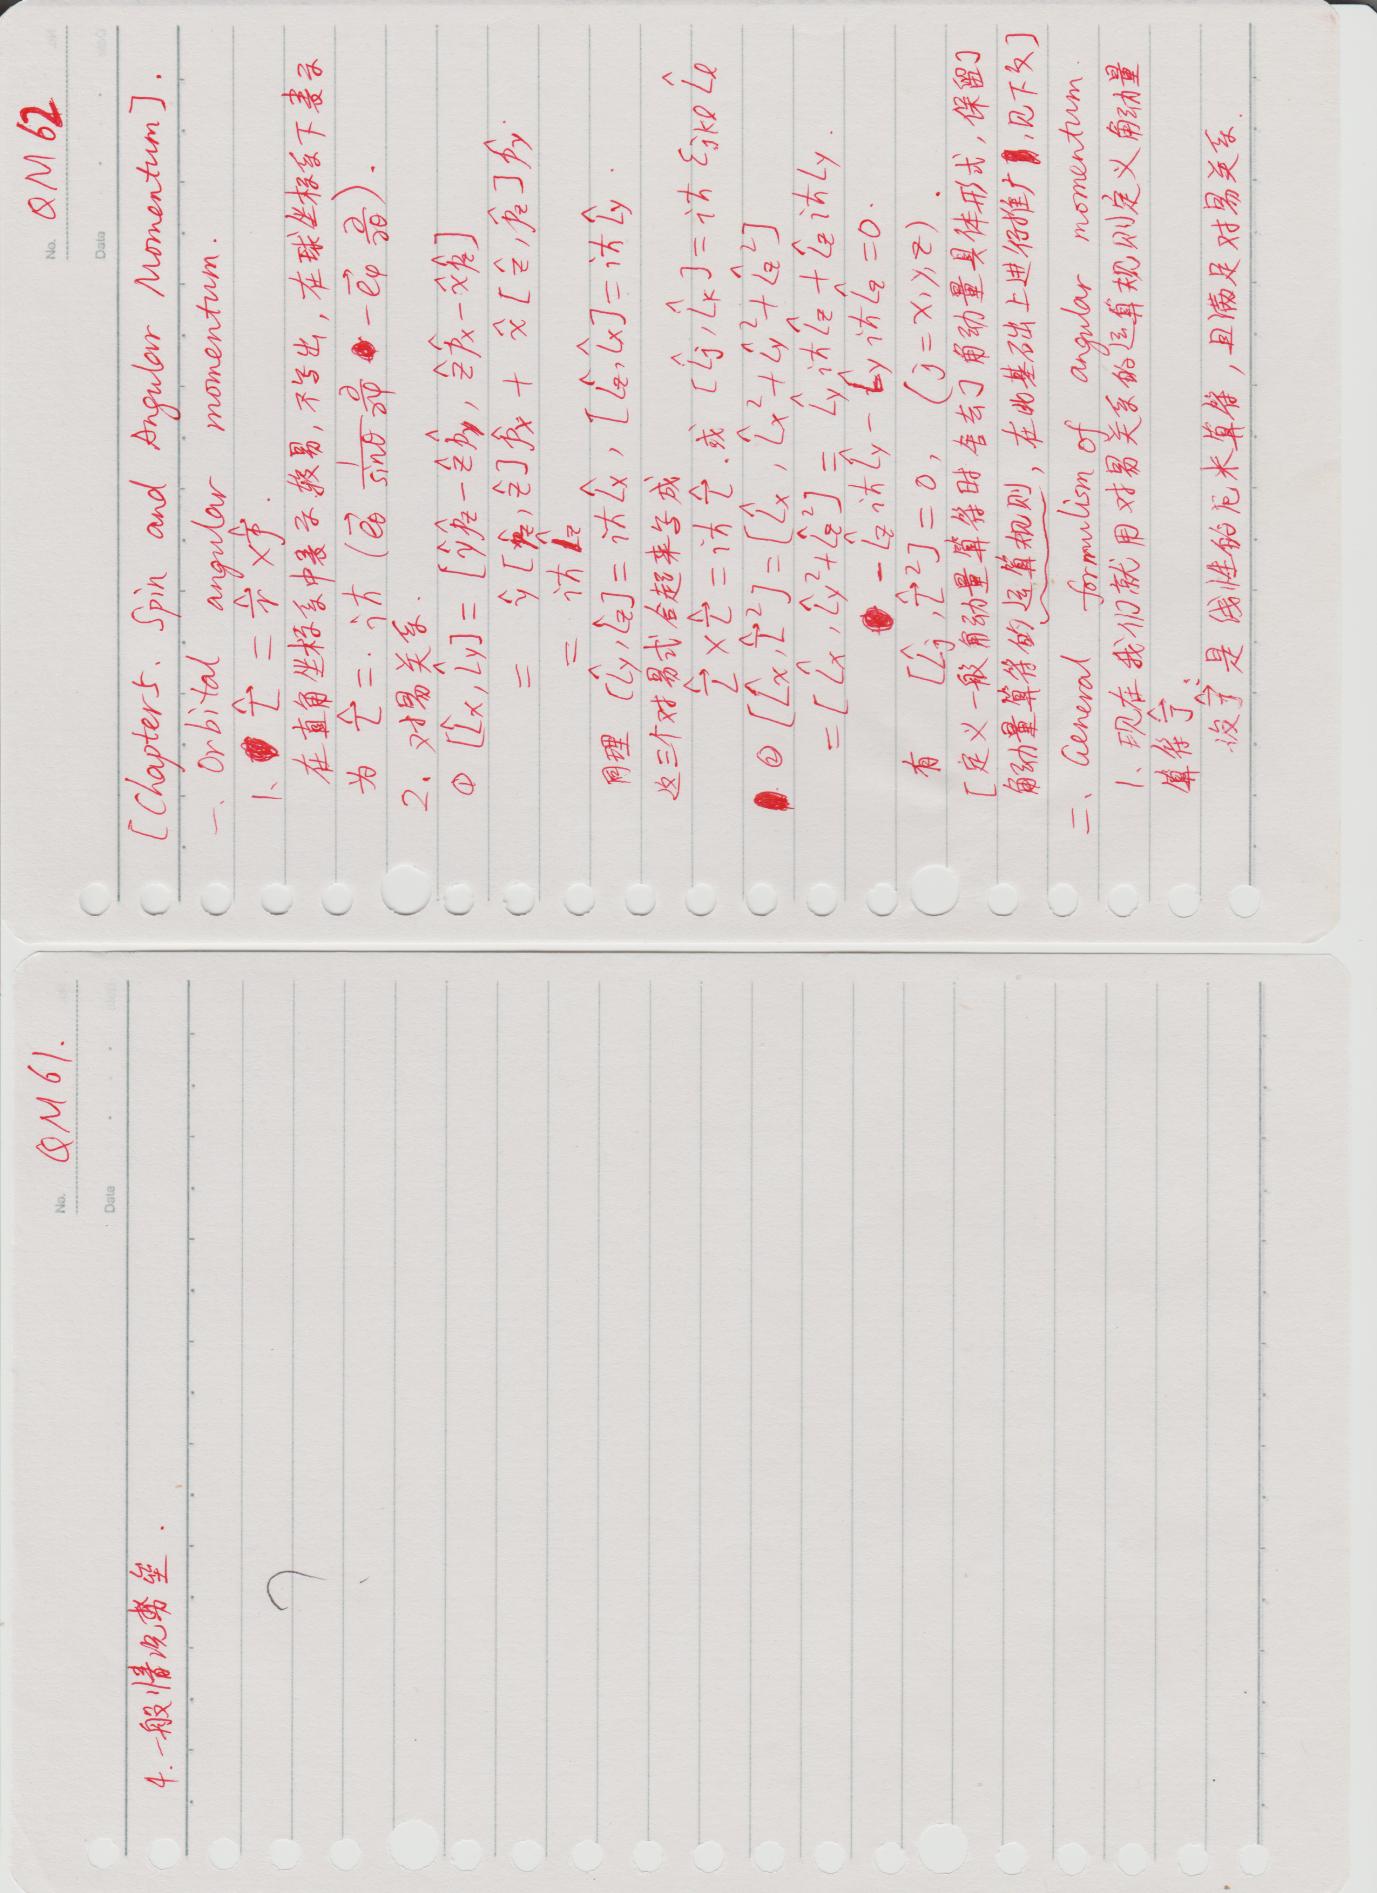 No. QM 61.
Date
4. 一般情况势垒.
?
No. QM 62
Date
[Chapter 5. Spin and Angular Momentum].
一. Orbital angular momentum.
1、 $\hat{\vec{L}} = \hat{\vec{r}} \times \hat{\vec{p}}$.
在直角坐标系中表示较易, 不写出, 在球坐标系下表示
为 $\hat{\vec{L}} = i\hbar (\vec{e}_\theta \frac{1}{\sin\theta} \frac{\partial}{\partial\varphi} - \vec{e}_\varphi \frac{\partial}{\partial\theta})$.
2. 对易关系.
① $[\hat{L}_x, \hat{L}_y] = [\hat{y}\hat{p}_z - \hat{z}\hat{p}_y, \hat{z}\hat{p}_x - \hat{x}\hat{p}_z]$
$= \hat{y}[\hat{p}_z, \hat{z}]\hat{p}_x + \hat{x}[\hat{z}, \hat{p}_z]\hat{p}_y$.
$= i\hbar \hat{L}_z$
同理 $[\hat{L}_y, \hat{L}_z] = i\hbar \hat{L}_x$, $[\hat{L}_z, \hat{L}_x] = i\hbar \hat{L}_y$.
这三个对易式合起来写成
$\hat{\vec{L}} \times \hat{\vec{L}} = i\hbar \hat{\vec{L}}$. 或 $[\hat{L}_j, \hat{L}_k] = i\hbar \varepsilon_{jkl} \hat{L}_l$
② $[\hat{L}_x, \hat{\vec{L}}^2] = [\hat{L}_x, \hat{L}_x^2 + \hat{L}_y^2 + \hat{L}_z^2]$
$= [\hat{L}_x, \hat{L}_y^2 + \hat{L}_z^2] = \hat{L}_y i\hbar \hat{L}_z + \hat{L}_z i\hbar L_y$.
$- \hat{L}_z i\hbar \hat{L}_y - \hat{L}_y i\hbar \hat{L}_z = 0$.
有 $[\hat{L}_j, \hat{\vec{L}}^2] = 0$, $(j = x, y, z)$.
[定义一般角动量算符时舍去了角动量具体形式, 保留了
角动量算符的运算规则, 在此基础上进行推广, 见下文]
二、General formulism of angular momentum.
1、现在我们就用对易关系的运算规则定义角动量
算符 $\hat{\vec{J}}$:
设 $\hat{\vec{J}}$ 是线性的厄米算符, 且满足对易关系.